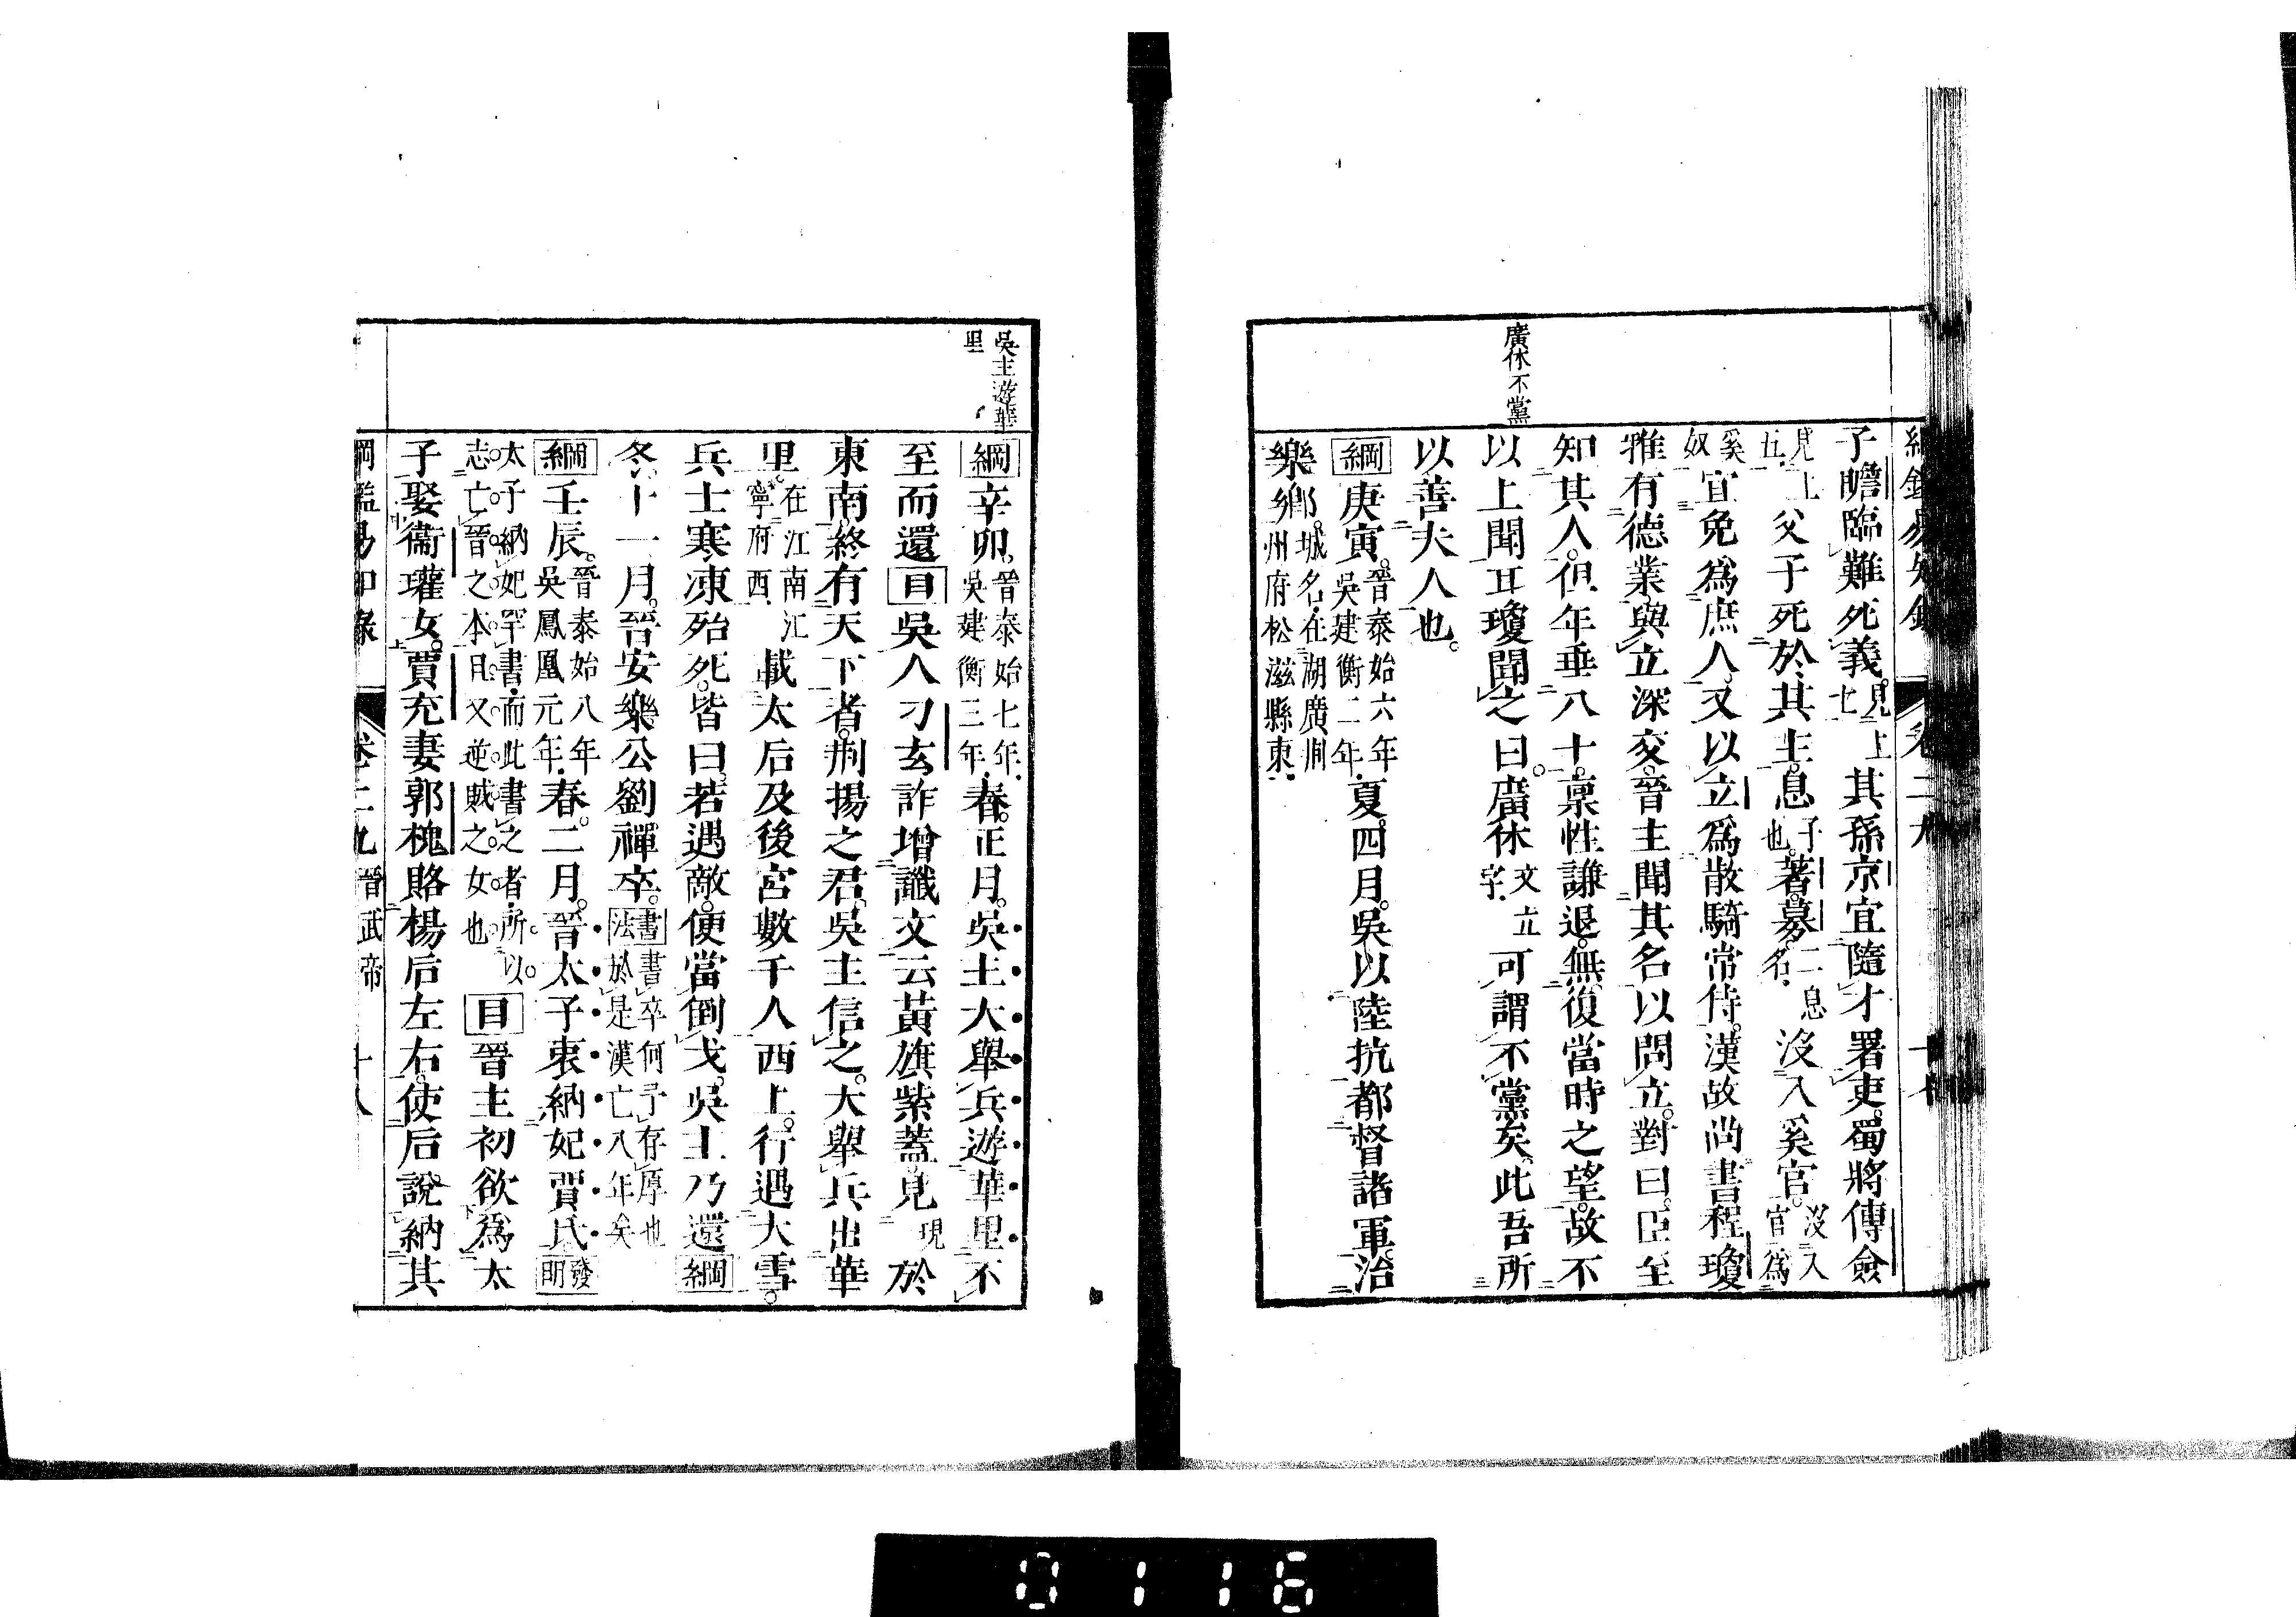 綱鑑易知錄 卷二九 十七
廣休不黨
子瞻臨難死義見上七其孫京宜隨才署吏蜀將傅僉
見上五父子死於其主息子也著募二息名沒入奚官沒入奚官為
奴宜免爲庶人又以立爲散騎常侍漢故尚書程瓊
雅有德業與立深交晉主聞其名以問立對曰臣至
知其人但年垂八十稟性謙退無復當時之望故不
以上聞耳瓊聞之曰廣休文立字可謂不黨矣此吾所
以善夫人也
綱庚寅晉泰始六年吳建衡二年夏四月吳以陸抗都督諸軍治
樂鄉城名在湖廣荊州府松滋縣東
吳主遊華里
綱辛卯晉泰始七年吳建衡三年春正月吳主大舉兵遊華里不
至而還目吳人刁玄詐增讖文云黃旗紫蓋見現於
東南終有天下者荆揚之君吳主信之大舉兵出華
里在江南江寧府西載太后及後宮數千人西上行遇大雪
兵士寒凍殆死皆曰若遇敵便當倒戈吳主乃還綱
冬十一月晉安樂公劉禪卒書法書卒何予存厚也於是漢亡八年矣
綱壬辰晉泰始八年吳鳳凰元年春二月晉太子衷納妃賈氏發明
太子納妃罕書而此書之者所以志亡晉之本且又逆賊之女也目晉主初欲爲太
子娶衞瓘女賈充妻郭槐賂楊后左右使后說納其
綱鑑易知錄 卷二九 晉武帝 十八
0116